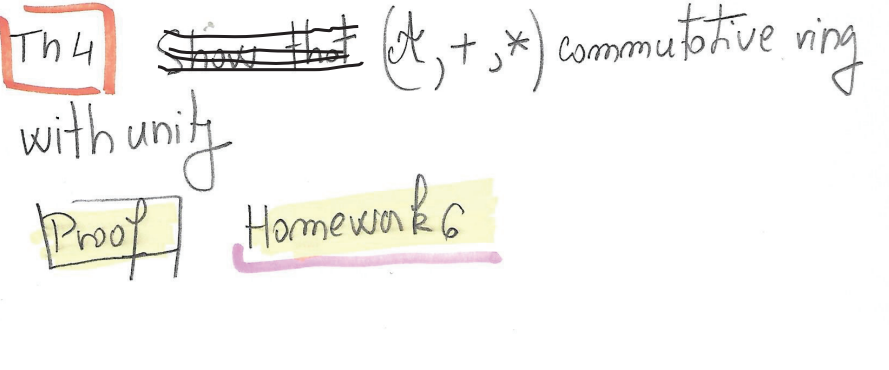 Th 4 (A, +, *) commutative ring
with unity
Proof Homework 6